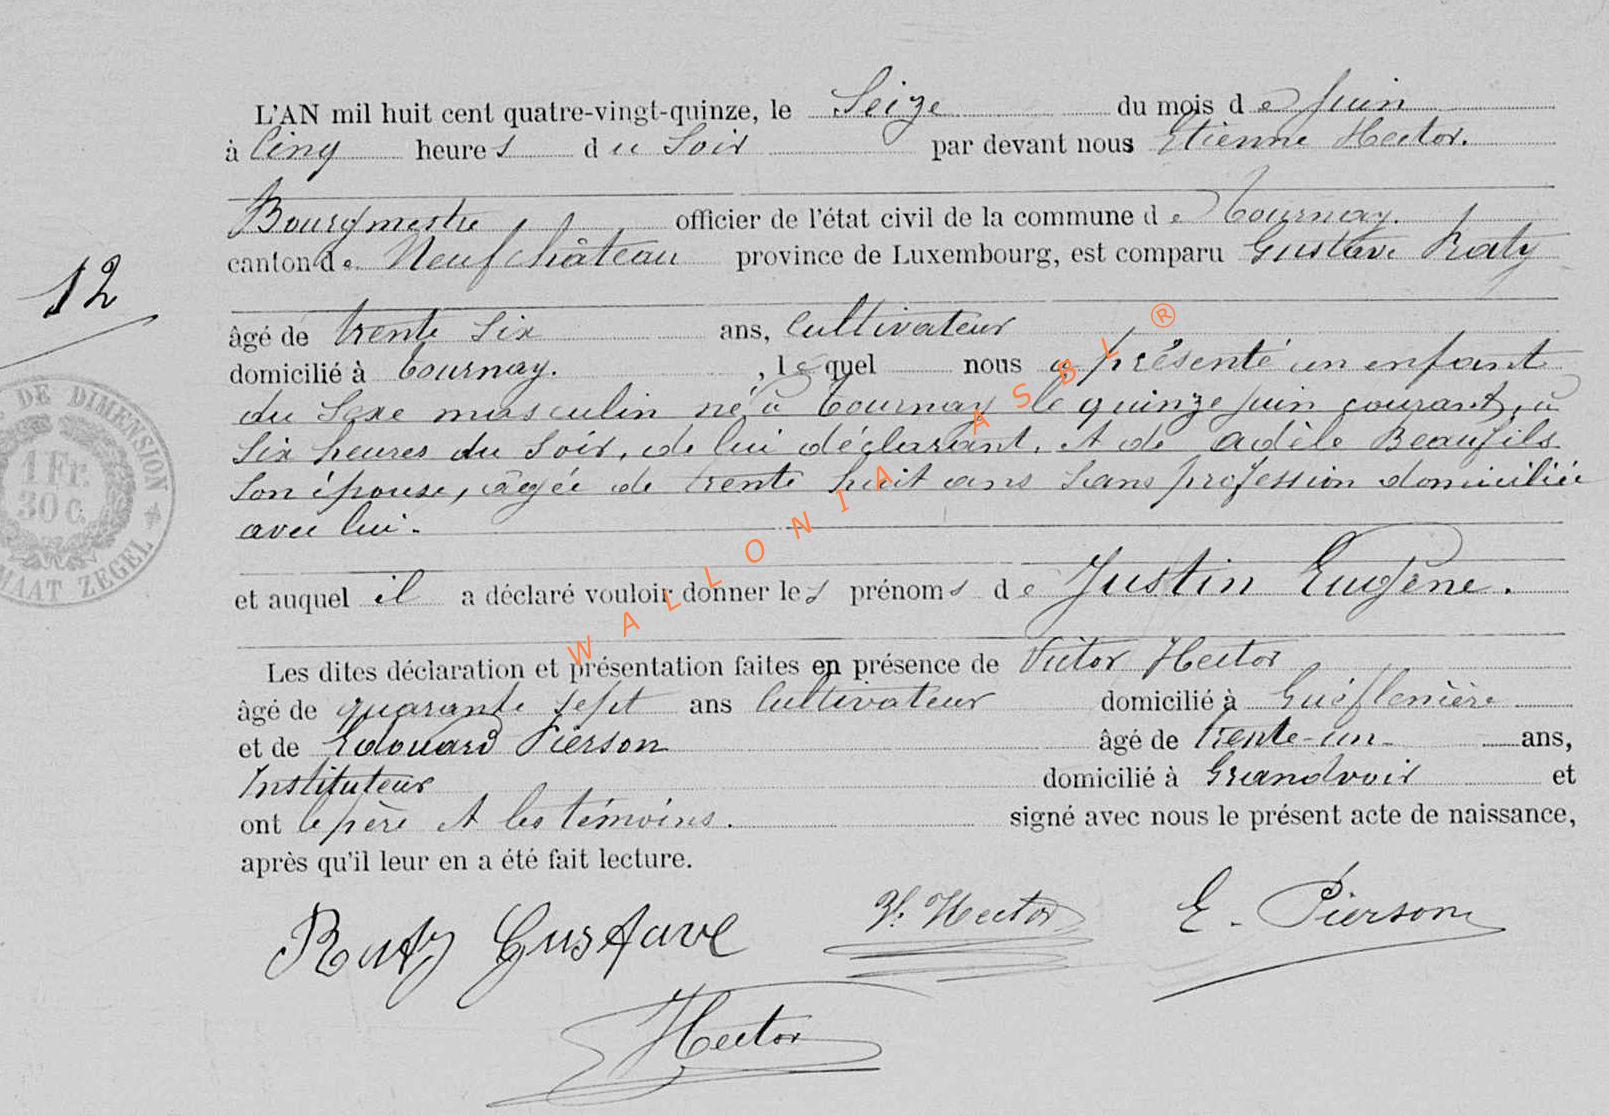 L'AN mil huit cent quatre-vingt-quinze, le Seize du mois de Juin
à Cinq heures du Soir par devant nous Etienne Hector.
Bourgmestre officier de l'état civil de la commune de Tournay.
canton de Neufchâteau province de Luxembourg, est comparu Gustave Raty
12
âgé de trente six ans, Cultivateur
domicilié à Tournay. , lequel nous a présenté un enfant
du Sexe masculin né à Tournay le quinze juin courant, à
Six heures du Soir, de lui déclarant, et de Adèle Beaufils
Son épouse, âgée de trente huit ans Sans profession domiciliée
avec lui.
DE DIMENSION
1 Fr.
30 C.
MAAT ZEGEL
et auquel il a déclaré vouloir donner les prénoms de Justin Eugène.
Les dites déclaration et présentation faites en présence de Victor Hector
âgé de quarante sept ans Cultivateur domicilié à
et de Edouard Pierson âgé de trente-un ans,
Instituteur domicilié à Grandvoir et
ont le père et les témoins. signé avec nous le présent acte de naissance,
après qu'il leur en a été fait lecture.
Raty Gustave V. Hector E. Pierson
Hector
WALLONIA ASBL ®